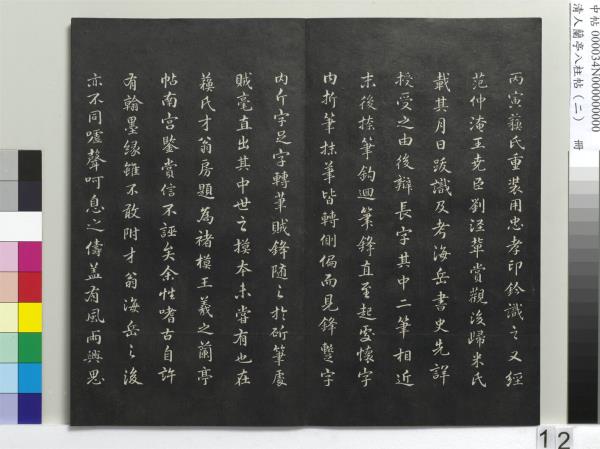 中帖 000034N000000000
清人蘭亭八柱帖(二) 冊
丙寅蘓氏重裝用忠孝印鈐識之又經
范仲淹王堯臣劉涇輩賞觀後歸米氏
載其月日跋識及考海岳書史先詳
授受之由後辯長字其中二筆相近
末後捺筆鈎迴筆鋒直至起處懷字
内折筆抹筆皆轉側偏而見鋒蹔字
内斤字足字轉筆賊鋒隨之於斫筆處
賊毫直出其中世之模本未嘗有也在
蘓氏才翁房題為褚模王羲之蘭亭
帖南宫鑒賞信不誣矣余性嗜古自許
有翰墨緣雖不敢附才翁海岳之後
亦不同噓聲呵息之儔盖有風雨興思
12